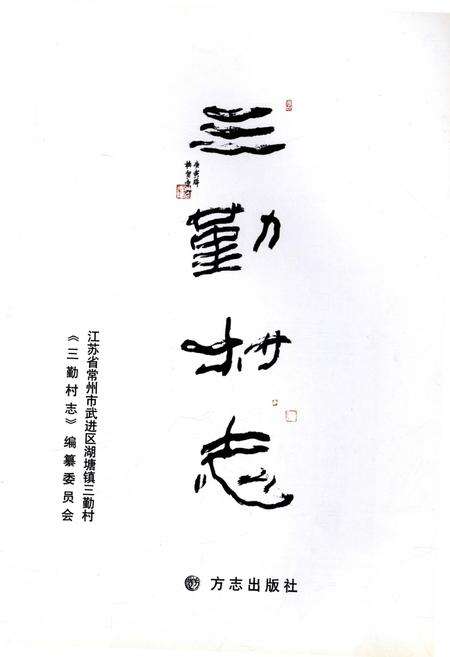 三勤村志
江苏省常州市武进区湖塘镇三勤村
《三勤村志》编纂委员会
方志出版社